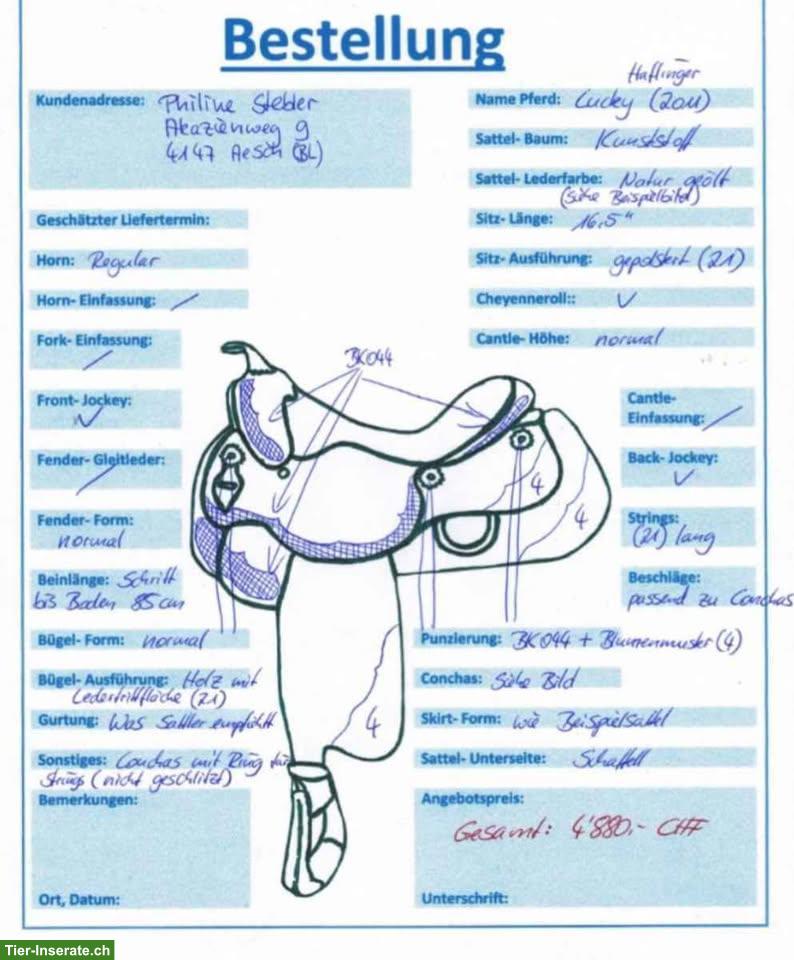 Bestellung
Kundenadresse: Philine Stebler
Akazienweg 9
4147 Aesch (BL)
Haflinger
Name Pferd: Lucky (2011)
Sattel- Baum: Kunststoff
Sattel- Lederfarbe: Natur geölt
(siehe Beispielbild)
Geschätzter Liefertermin:
Sitz- Länge: 16,5"
Horn: Regular
Sitz- Ausführung: gepolstert (21)
Horn- Einfassung: /
Cheyenneroll:: ✓
Fork- Einfassung:
/
Cantle- Höhe: normal
BK044
Front- Jockey:
✓
Cantle-
Einfassung: /
Fender- Gleitleder:
/
Back- Jockey:
✓
4
4
Fender- Form:
normal
Strings:
(21) lang
Beinlänge: Schritt
bis Boden 85 cm
Beschläge:
passend zu Conchas
Bügel- Form: normal
Punzierung: BK044 + Blumenmuster (4)
Bügel- Ausführung: Holz mit
Ledertrittfläche (21)
Conchas: Siehe Bild
Gurtung: Was Sattler empfiehlt
Skirt- Form: wie Beispielsattel
4
Sonstiges: Conchas mit Ring für
Strings (nicht geschlitzt)
Sattel- Unterseite: Schaffell
Bemerkungen:
Angebotspreis:
Gesamt: 4'880.- CHF
Ort, Datum:
Unterschrift:
Tier-Inserate.ch